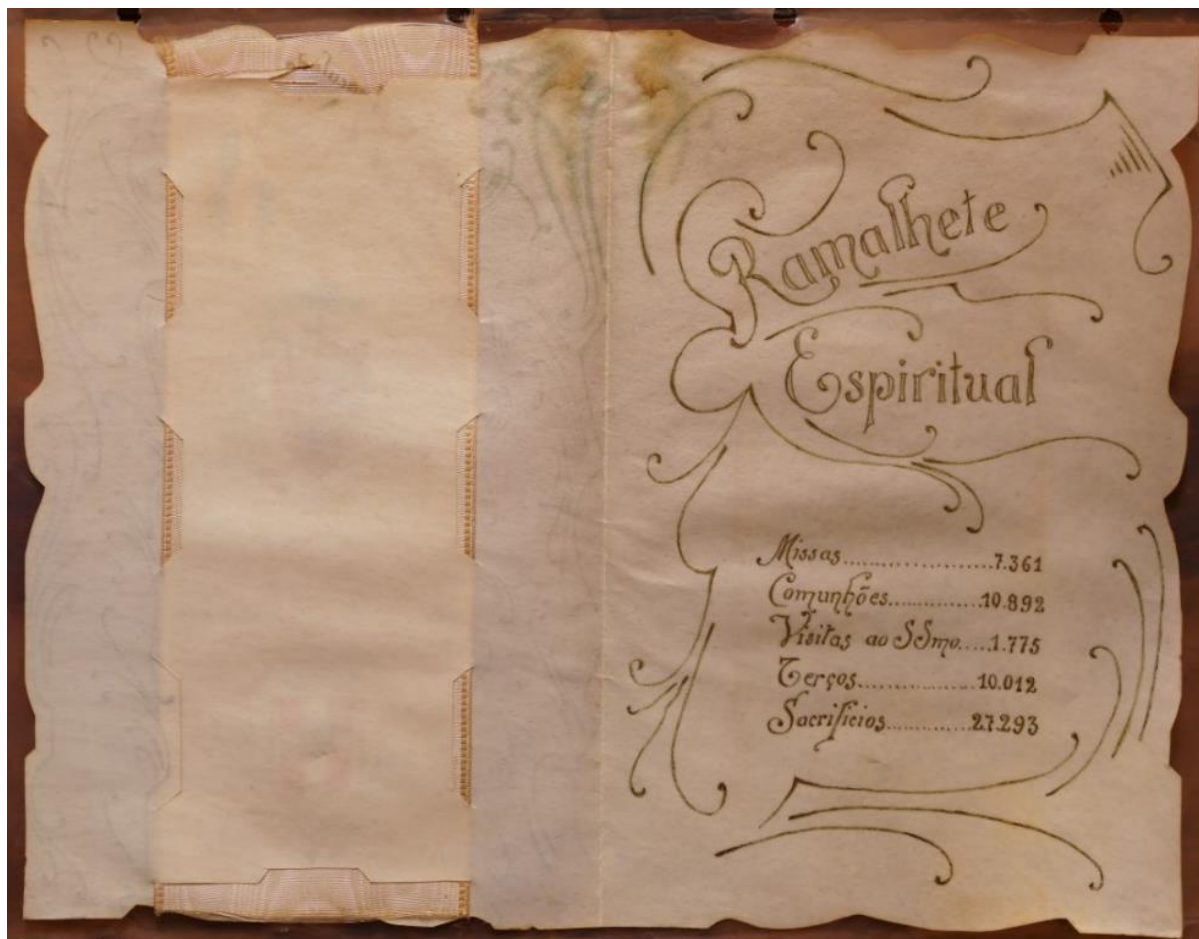 Ramalhete
Espiritual
Missas....................7.361
Comunhões..............10.892
Visitas ao SSmo.....1.775
Terços.................10.012
Sacrifícios.............27.293